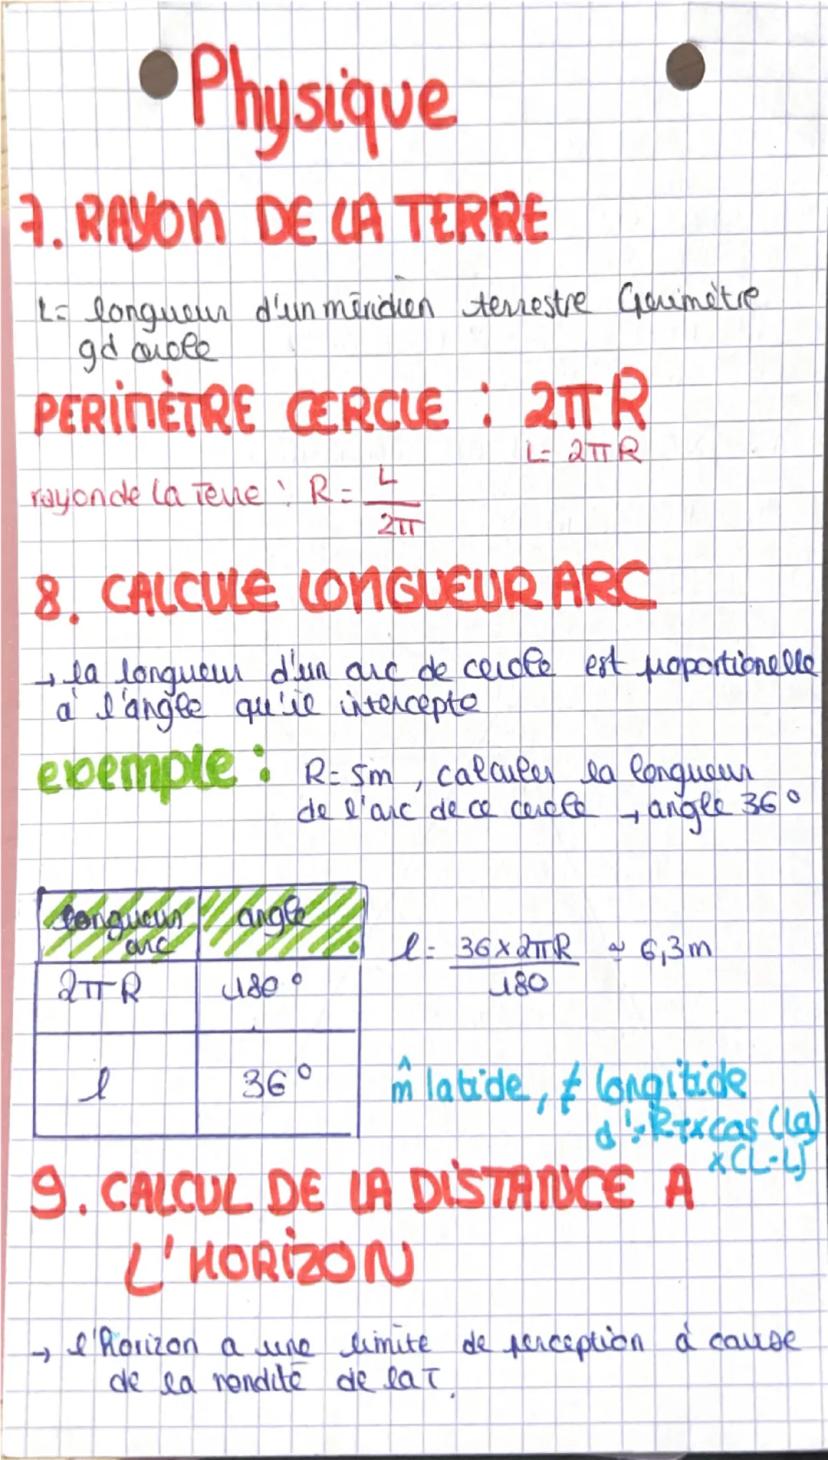 Physique
7. RAYON DE LA TERRE
L= longueur d'un méridien terrestre
gd cercle
PERIMÈTRE CERCLE : 2πR
L= 2πR
rayon de la Terre : R = L / 2π
8. CALCULE LONGUEUR ARC
→ la longueur d'un arc de cercle est proportionelle
à l'angle qu'il intercepte
exemple : R= 5m, calculer la longueur
de l'arc de ce cercle → angle 36°
longueur arc angle
2πR 180°
l 36°
l= 36×2πR / 180 ≃ 6,3m
m̂ latide, ≠ longitide
× (L-L)
9. CALCUL DE LA DISTANCE A
L'HORIZON
→ l'horizon a une limite de perception à cause
de la rondité de la T.